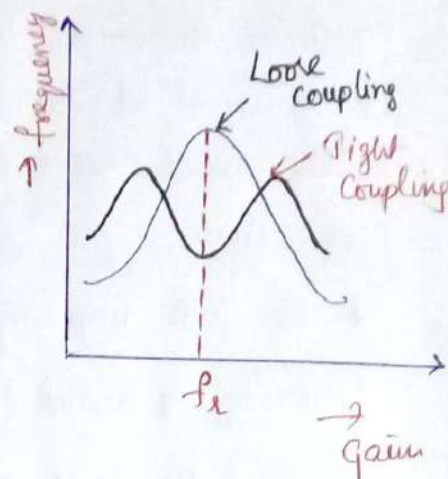 → frequency
Loose
coupling
Tight
Coupling
fr
→
Gain